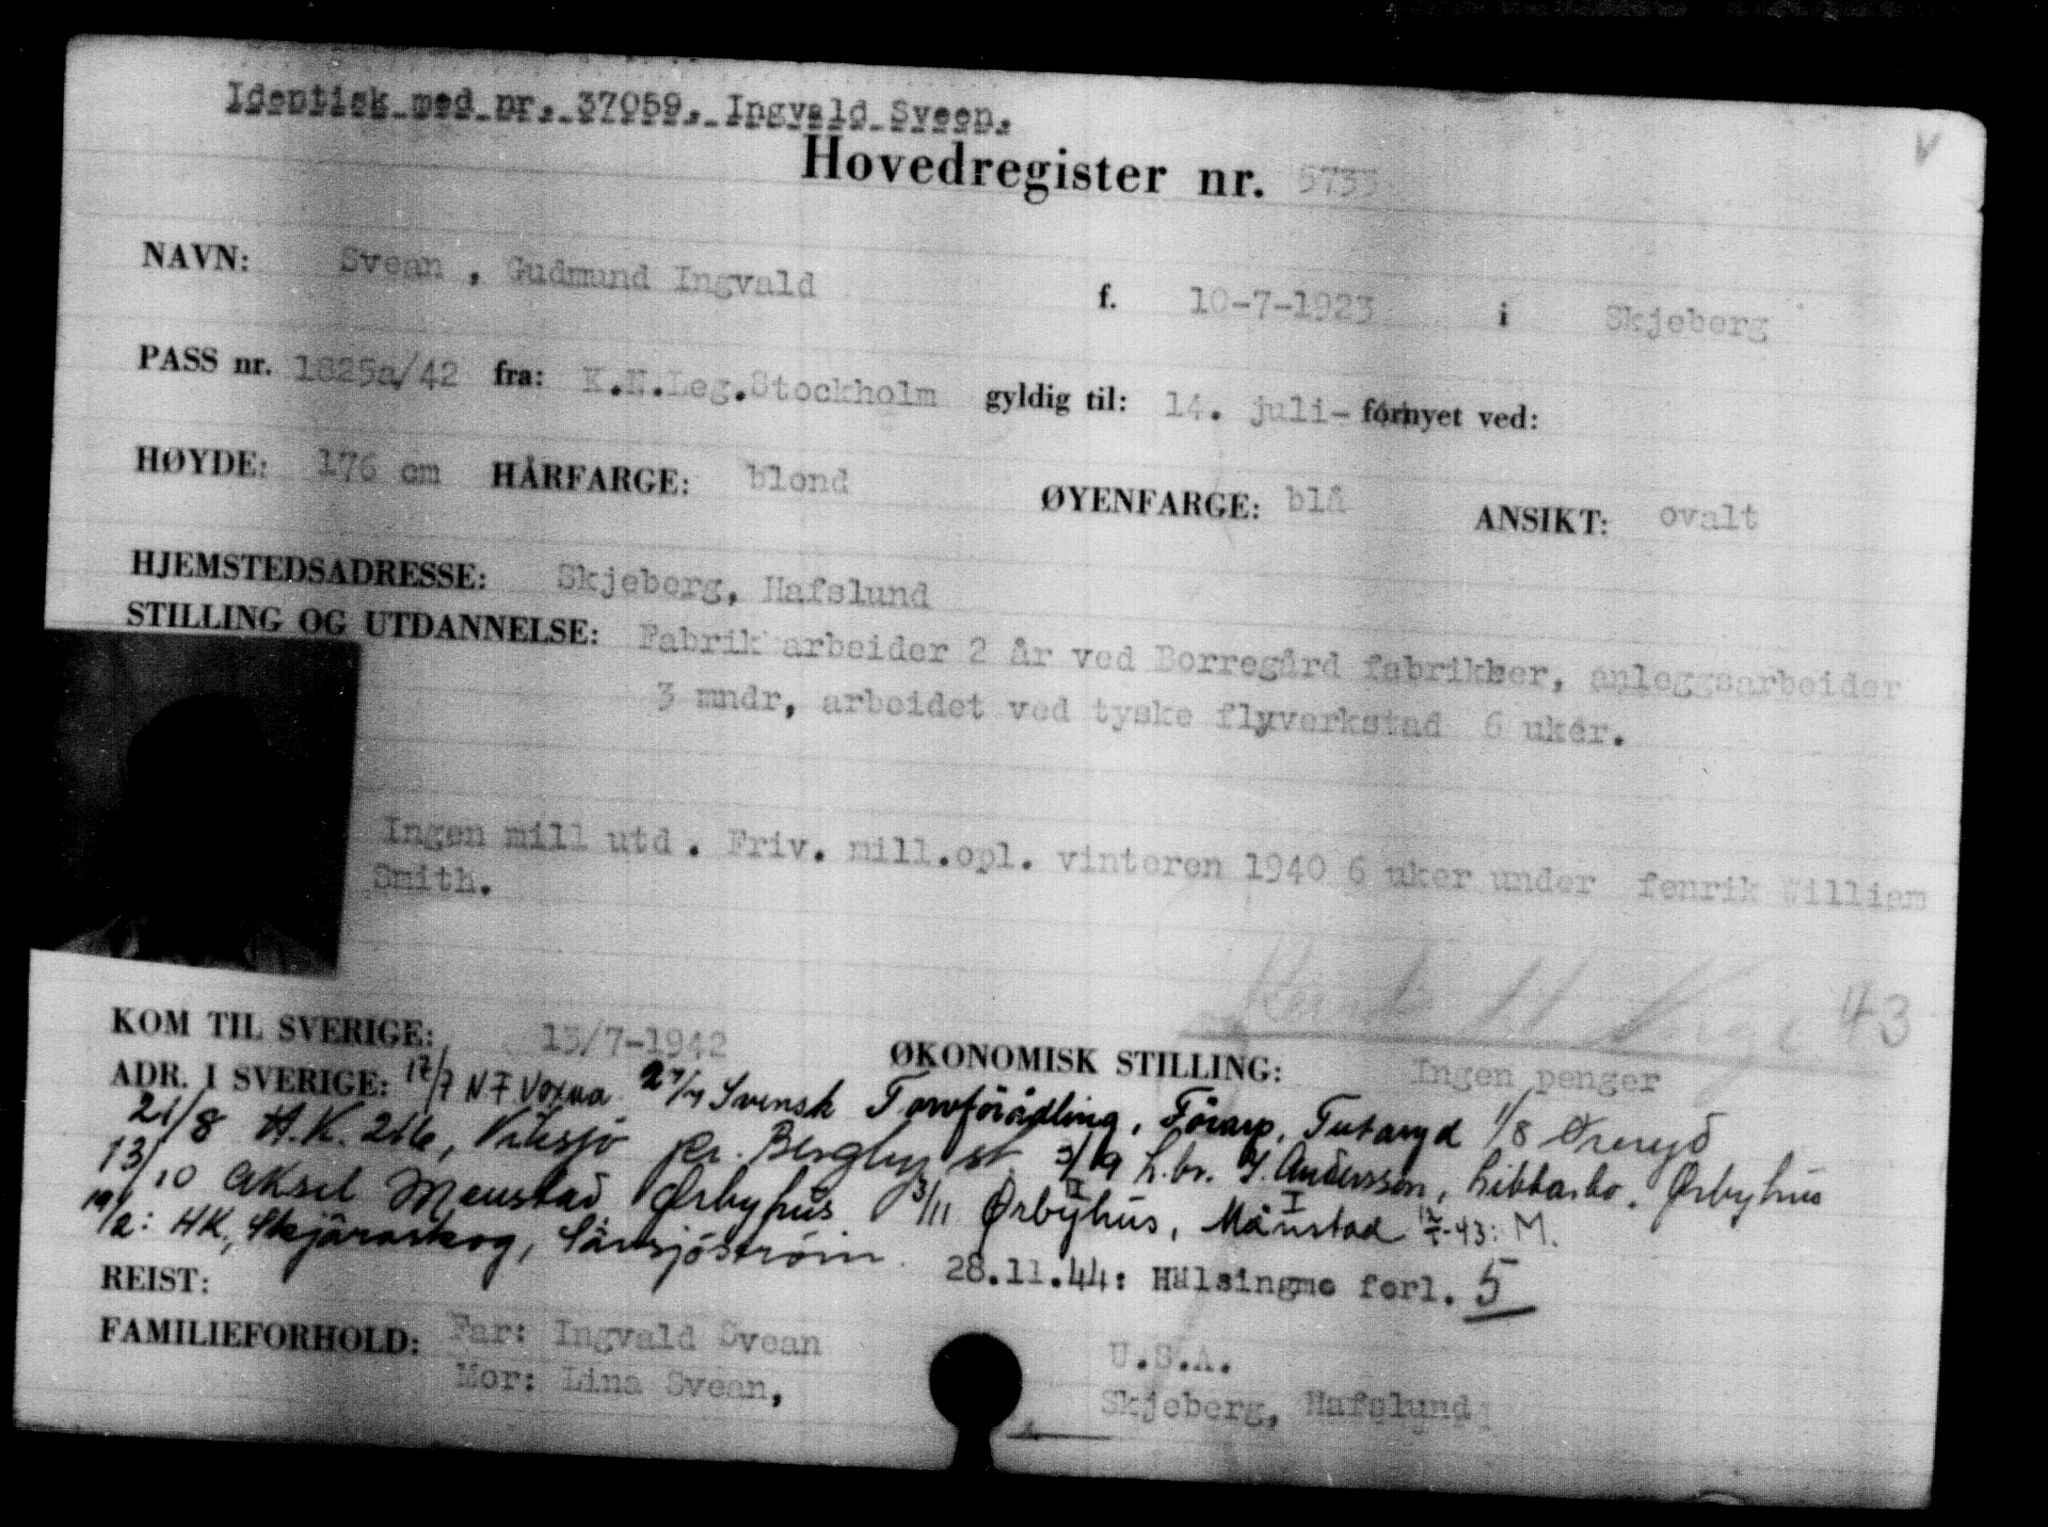 Identisk med nr. 37059. Ingvald Sveen.
Hovedregister nr. 5735
NAVN: Svean, Gudmund Ingvald f. 10-7-1923 i Skjeberg
PASS nr. 1825a/42 fra: K.N.Leg.Stockholm gyldig til: 14. juli- fornyet ved:
HØYDE: 176 cm HÅRFARGE: blond ØYENFARGE: blå ANSIKT: ovalt
HJEMSTEDSADRESSE: Skjeberg, Hafslund
STILLING OG UTDANNELSE: Fabrikkarbeider 2 år ved Borregård fabrikker, anleggsarbeider
3 mndr, arbeidet ved tyske flyverkstad 6 uker.
Ingen mill utd. Friv. mill.opl. vinteren 1940 6 uker under fenrik William
Smith.
43
KOM TIL SVERIGE: 13/7-1942 ØKONOMISK STILLING: Ingen penger
ADR. I SVERIGE: 17/7 N F Voxna Svensk Torvförädling, Förarp, Tutaryd 1/8 Øreryd
21/8 A.K. 216, Viksjö pr. Bergby st. 3/9 L.br. Y. Andersson, Libbarbo, Ørbyhus
13/10 Aksel Menstad Ørbyhus 3/11 Ørbyhus, Månstad -43: M.
19/2: HK, Skjåraskog, Särsjöström. 28.11.44: Hälsingmo forl. 5
REIST:
FAMILIEFORHOLD: Far: Ingvald Svean U.S.A.
Mor: Lina Svean, Skjeberg, Hafslund